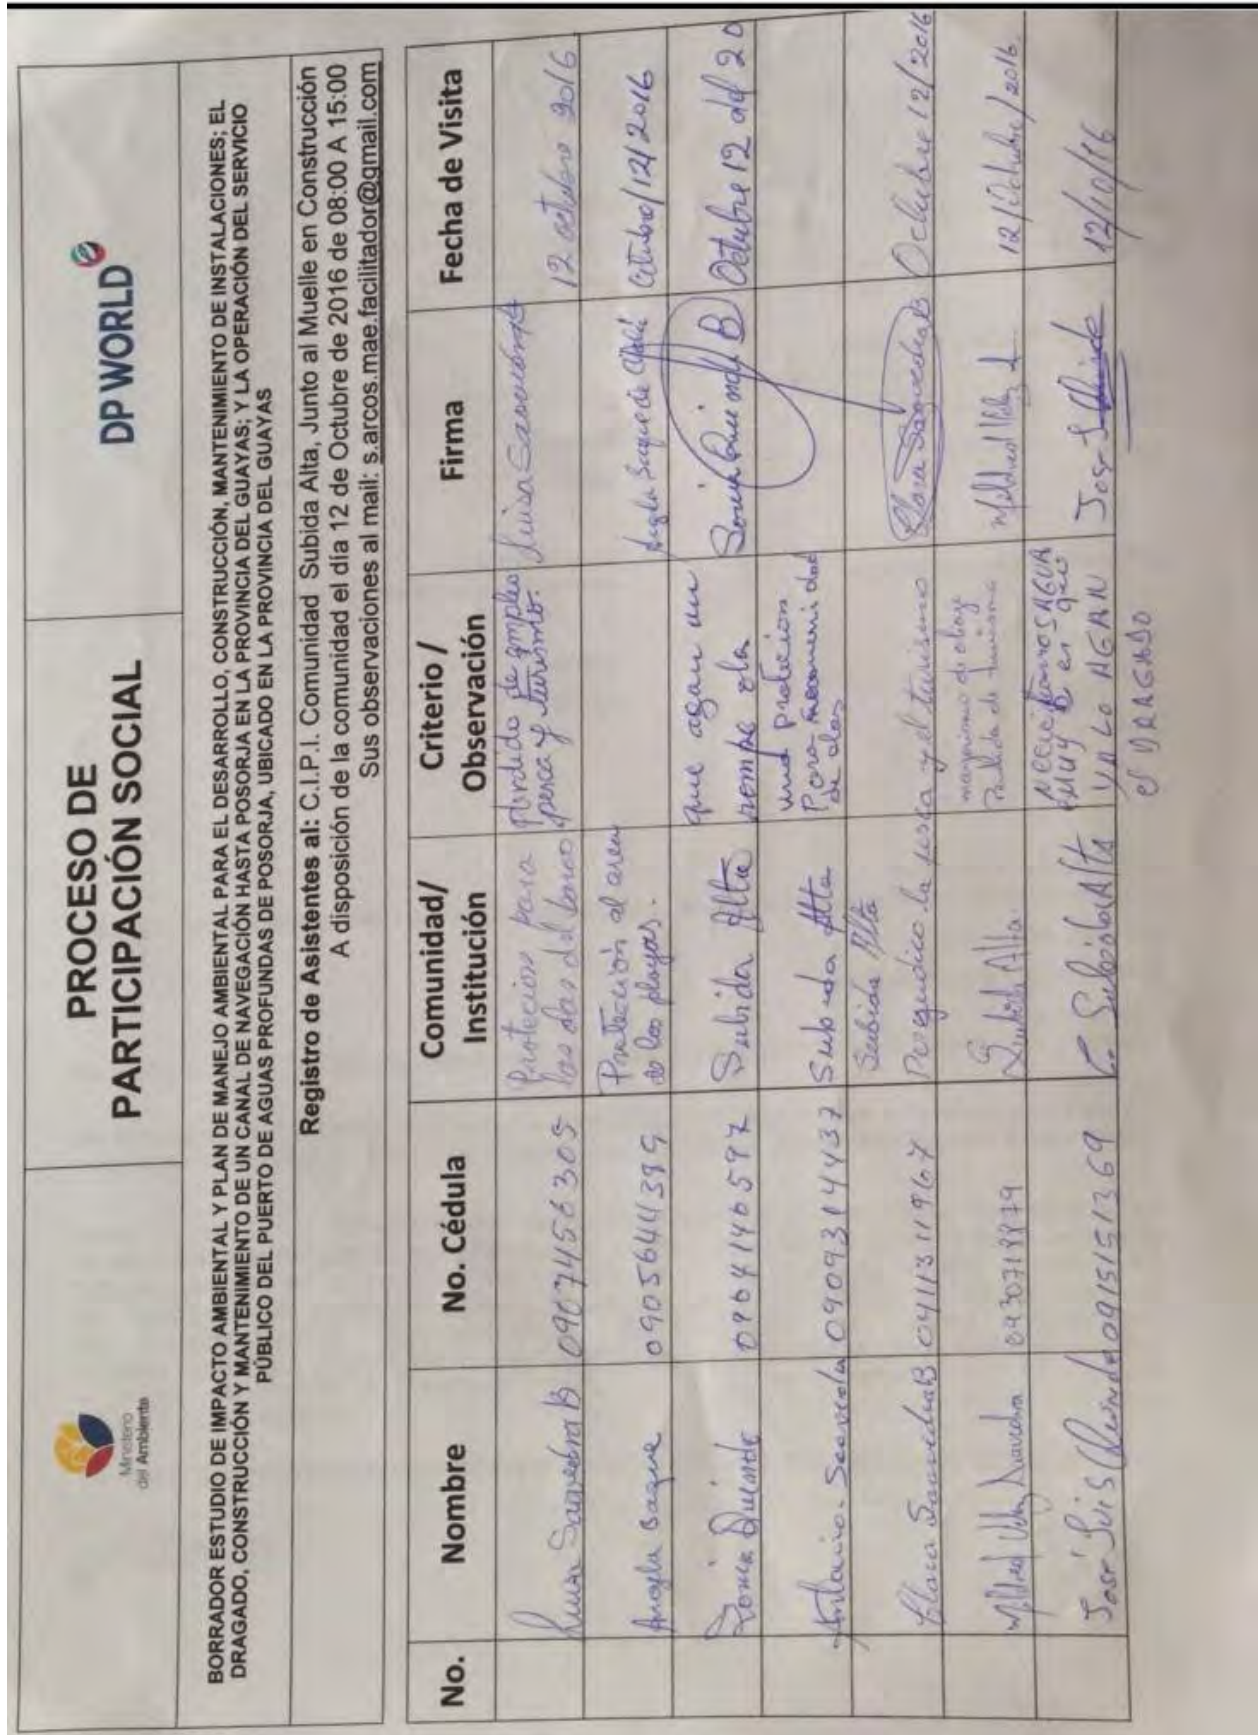 Ministerio
del Ambiente
PROCESO DE
PARTICIPACIÓN SOCIAL
DP WORLD
BORRADOR ESTUDIO DE IMPACTO AMBIENTAL Y PLAN DE MANEJO AMBIENTAL PARA EL DESARROLLO, CONSTRUCCIÓN, MANTENIMIENTO DE INSTALACIONES; EL
DRAGADO, CONSTRUCCIÓN Y MANTENIMIENTO DE UN CANAL DE NAVEGACIÓN HASTA POSORJA EN LA PROVINCIA DEL GUAYAS; Y LA OPERACIÓN DEL SERVICIO
PÚBLICO DEL PUERTO DE AGUAS PROFUNDAS DE POSORJA, UBICADO EN LA PROVINCIA DEL GUAYAS
Registro de Asistentes al: C.I.P.I. Comunidad Subida Alta, Junto al Muelle en Construcción
A disposición de la comunidad el día 12 de Octubre de 2016 de 08:00 A 15:00
Sus observaciones al mail: s.arcos.mae.facilitador@gmail.com
No. Nombre No. Cédula Comunidad/ Institución Criterio / Observación Firma Fecha de Visita
Luisa Saavedra B
Protecion para
las olas del barco
perdida de empleo
pesca y turismo.
12 octubre 2016
Angela Baque 0905644389
Protección al area
de las playas.
Octubre/12/2016
Sonia Quinde
Subida Alta
que agan un
rompe ola
Octubre 12 del 20
Antonio Saavedra 0909314437
Subida Alta
una protecion
Para
de olas
Clara Saavedra B 0411311967
Subida Alta
Perjudico la pesca y el turismo
Clara Saavedra B
Octubre 12/2016
Mildred
Subida Alta.
12/Octubre/2016.
José Luis Quinde 0915151369
C. Subida Alta
AGUA
MUY
YA LO AGAN
el DRAGADO
12/10/16